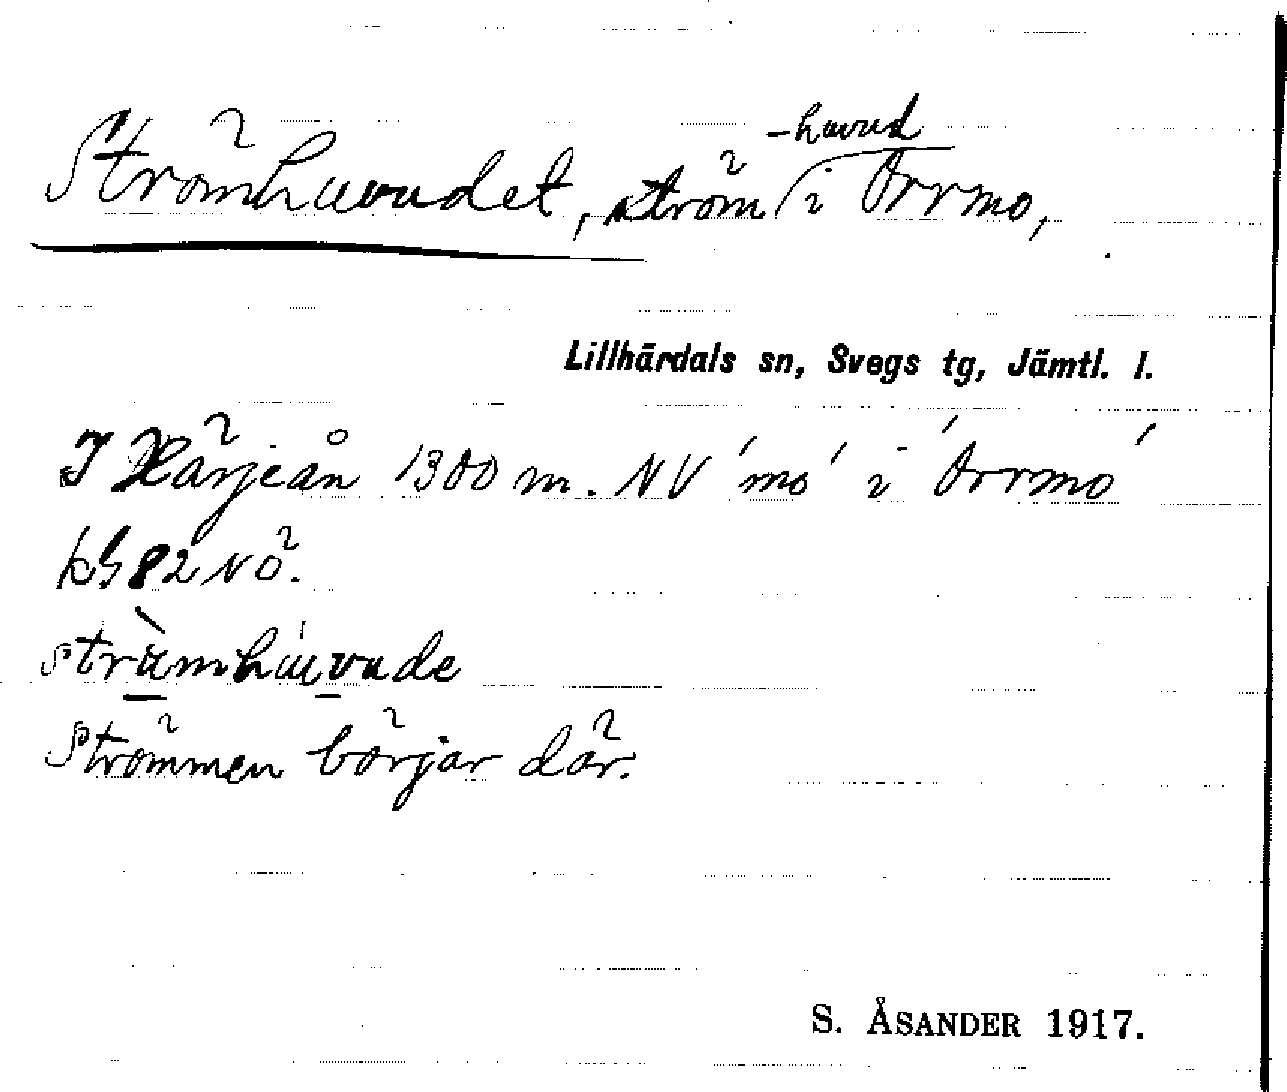 Strömhuvudet, ström -huvud i Orrmo,
Lillhärdals sn, Svegs tg, Jämtl. l.
I Härjeån 1300 m. NV 'mo' i 'Orrmo'
kbl 82 NÖ.
strämhúvude
Strömmen börjar där.
S. ÅSANDER 1917.